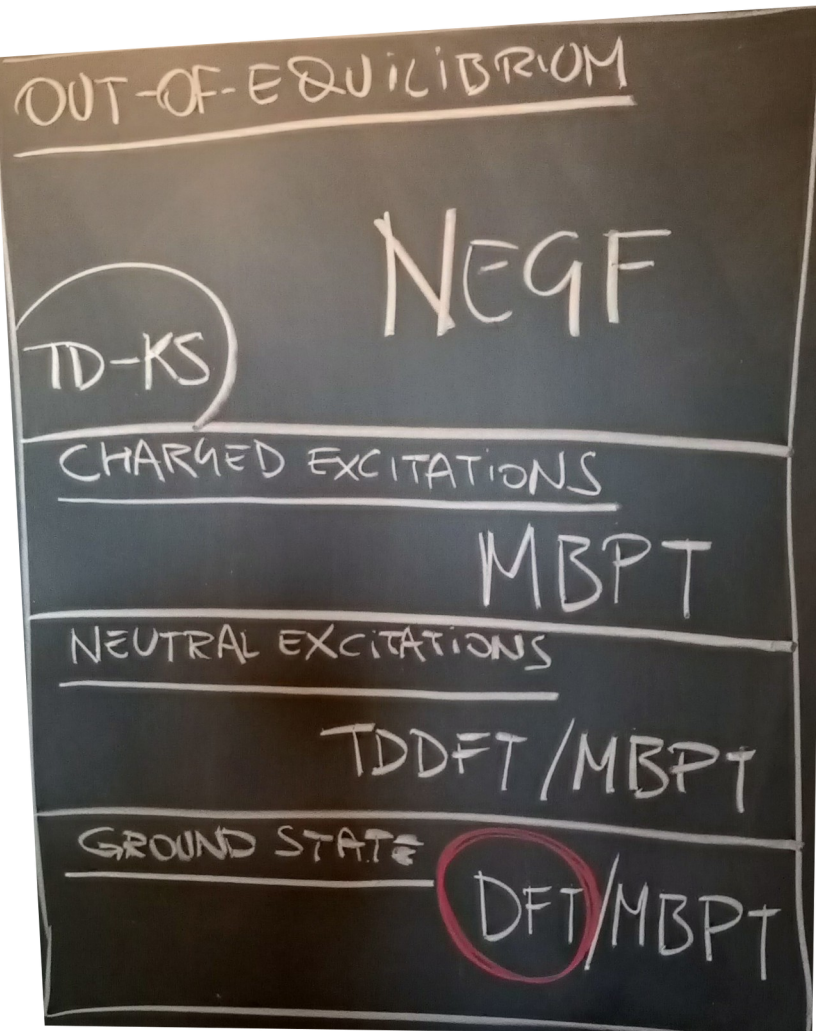 OUT-OF-EQUiLiBRIUM
NEGF
TD-KS
CHARGED EXCITATiONS
MBPT
NEUTRAL EXCiTATiONS
TDDFT/MBPT
GROUND STATE
DFT/MBPT